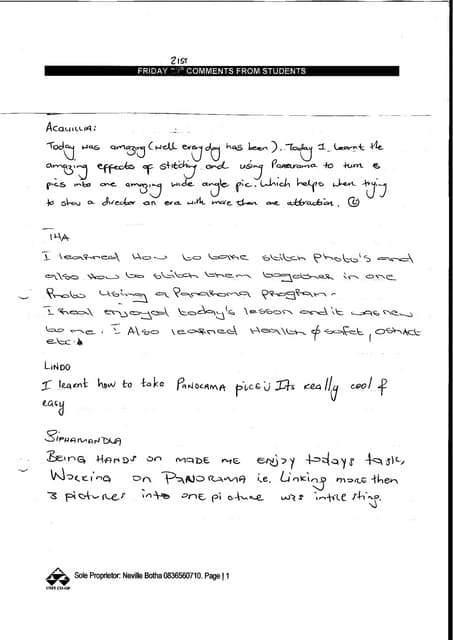 21ST
FRIDAY COMMENTS FROM STUDENTS
ACQUILLIA:
Today was amazing (well everyday has been). Today I learnt the
amazing effects of stitching and using Panarama to turn 6
pics into one amazing wide angle pic. Which helps when trying
to show a director an era with more than one attraction.
IHA
I learned How to take stitch Photo's and
also How to stitch them together in one
Photo using a Panaroma program.
I real enjoyed today's lesson and it was new
to me. I Also learned Health & safet, OSHAct
etc.
LINDO
I learnt how to take PANORAMA pics Its really cool &
easy
SIPHAMANDLA
BEING HANDS ON MADE ME ENJOY todays task,
WORKING ON PANORAMA i.e. Linking more then
3 pictures into one picture was intresting.
UNIT CO-OP
Sole Proprietor: Neville Botha 0836560710. Page | 1